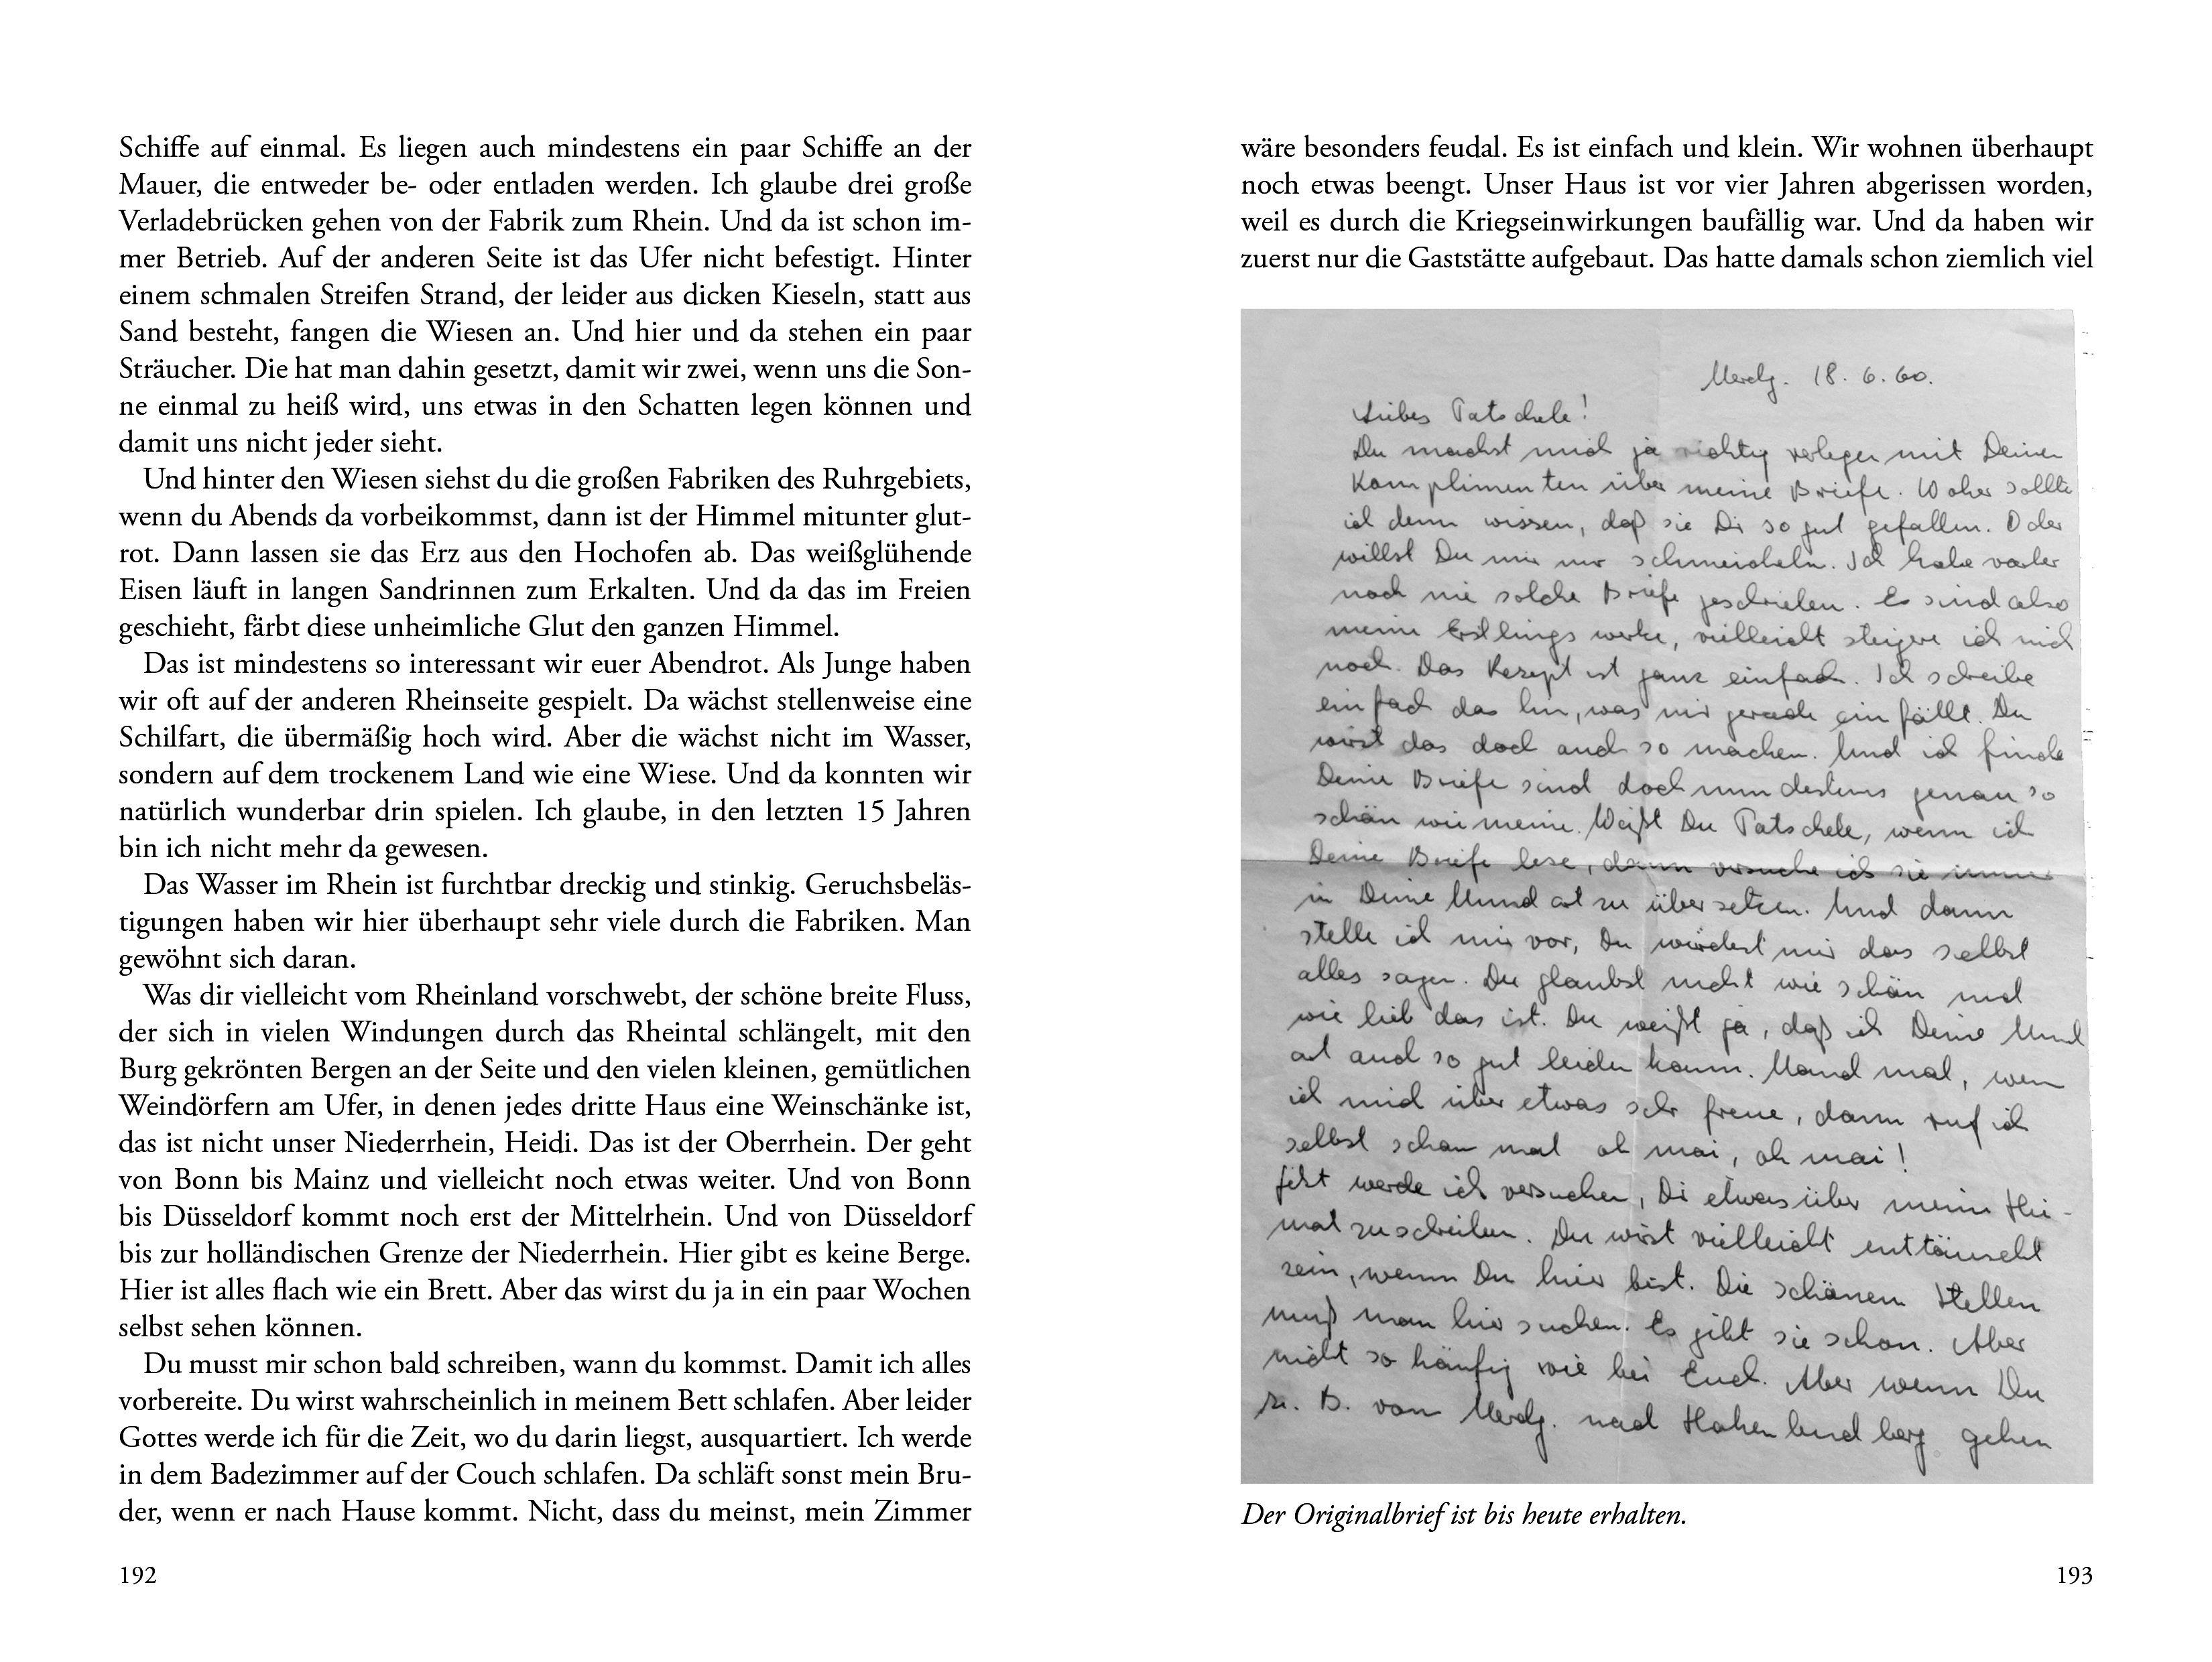 Schiffe auf einmal. Es liegen auch mindestens ein paar Schiffe an der
Mauer, die entweder be- oder entladen werden. Ich glaube drei große
Verladebrücken gehen von der Fabrik zum Rhein. Und da ist schon im-
mer Betrieb. Auf der anderen Seite ist das Ufer nicht befestigt. Hinter
einem schmalen Streifen Strand, der leider aus dicken Kieseln, statt aus
Sand besteht, fangen die Wiesen an. Und hier und da stehen ein paar
Sträucher. Die hat man dahin gesetzt, damit wir zwei, wenn uns die Son-
ne einmal zu heiß wird, uns etwas in den Schatten legen können und
damit uns nicht jeder sieht.
Und hinter den Wiesen siehst du die großen Fabriken des Ruhrgebiets,
wenn du Abends da vorbeikommst, dann ist der Himmel mitunter glut-
rot. Dann lassen sie das Erz aus den Hochofen ab. Das weißglühende
Eisen läuft in langen Sandrinnen zum Erkalten. Und da das im Freien
geschieht, färbt diese unheimliche Glut den ganzen Himmel.
Das ist mindestens so interessant wir euer Abendrot. Als Junge haben
wir oft auf der anderen Rheinseite gespielt. Da wächst stellenweise eine
Schilfart, die übermäßig hoch wird. Aber die wächst nicht im Wasser,
sondern auf dem trockenem Land wie eine Wiese. Und da konnten wir
natürlich wunderbar drin spielen. Ich glaube, in den letzten 15 Jahren
bin ich nicht mehr da gewesen.
Das Wasser im Rhein ist furchtbar dreckig und stinkig. Geruchsbeläs-
tigungen haben wir hier überhaupt sehr viele durch die Fabriken. Man
gewöhnt sich daran.
Was dir vielleicht vom Rheinland vorschwebt, der schöne breite Fluss,
der sich in vielen Windungen durch das Rheintal schlängelt, mit den
Burg gekrönten Bergen an der Seite und den vielen kleinen, gemütlichen
Weindörfern am Ufer, in denen jedes dritte Haus eine Weinschänke ist,
das ist nicht unser Niederrhein, Heidi. Das ist der Oberrhein. Der geht
von Bonn bis Mainz und vielleicht noch etwas weiter. Und von Bonn
bis Düsseldorf kommt noch erst der Mittelrhein. Und von Düsseldorf
bis zur holländischen Grenze der Niederrhein. Hier gibt es keine Berge.
Hier ist alles flach wie ein Brett. Aber das wirst du ja in ein paar Wochen
selbst sehen können.
Du musst mir schon bald schreiben, wann du kommst. Damit ich alles
vorbereite. Du wirst wahrscheinlich in meinem Bett schlafen. Aber leider
Gottes werde ich für die Zeit, wo du darin liegst, ausquartiert. Ich werde
in dem Badezimmer auf der Couch schlafen. Da schläft sonst mein Bru-
der, wenn er nach Hause kommt. Nicht, dass du meinst, mein Zimmer
192
wäre besonders feudal. Es ist einfach und klein. Wir wohnen überhaupt
noch etwas beengt. Unser Haus ist vor vier Jahren abgerissen worden,
weil es durch die Kriegseinwirkungen baufällig war. Und da haben wir
zuerst nur die Gaststätte aufgebaut. Das hatte damals schon ziemlich viel
Uerdg. 18. 6. 60.
Liebes Tatschele!
Du machst mich ja richtig verlegen mit Deinen
Komplimenten über meine Briefe. Woher sollte
ich denn wissen, daß sie Dir so gut gefallen. Oder
willst Du mir nur schmeicheln. Ich habe vorher
noch nie solche Briefe geschrieben. Es sind also
meine Erstlingswerke, vielleicht steigere ich mich
noch. Das Rezept ist ganz einfach. Ich schreibe
einfach das hin, was mir gerade einfällt. Du
wirst das doch auch so machen. Und ich finde
Deine Briefe sind doch mindestens genau so
schön wie meine. Weißt Du Tatschele, wenn ich
Deine Briefe lese, dann versuche ich sie immer
in Deine Mundart zu übersetzen. Und dann
stelle ich mir vor, Du würdest mir das selbst
alles sagen. Du glaubst nicht wie schön und
wie lieb das ist. Du weißt ja, daß ich Deine Mund
art auch so gut leiden kann. Manchmal, wenn
ich mich über etwas sehr freue, dann ruf ich
selbst schon mal oh mai, oh mai!
Jetzt werde ich versuchen, Dir etwas über meine Hei-
mat zu schreiben. Du wirst vielleicht enttäuscht
sein, wenn Du hier bist. Die schönen Stellen
muß man hier suchen. Es gibt sie schon. Aber
nicht so häufig wie bei Euch. Aber wenn Du
z. B. von Uerdg. nach Hohenbudberg gehen
Der Originalbrief ist bis heute erhalten.
193